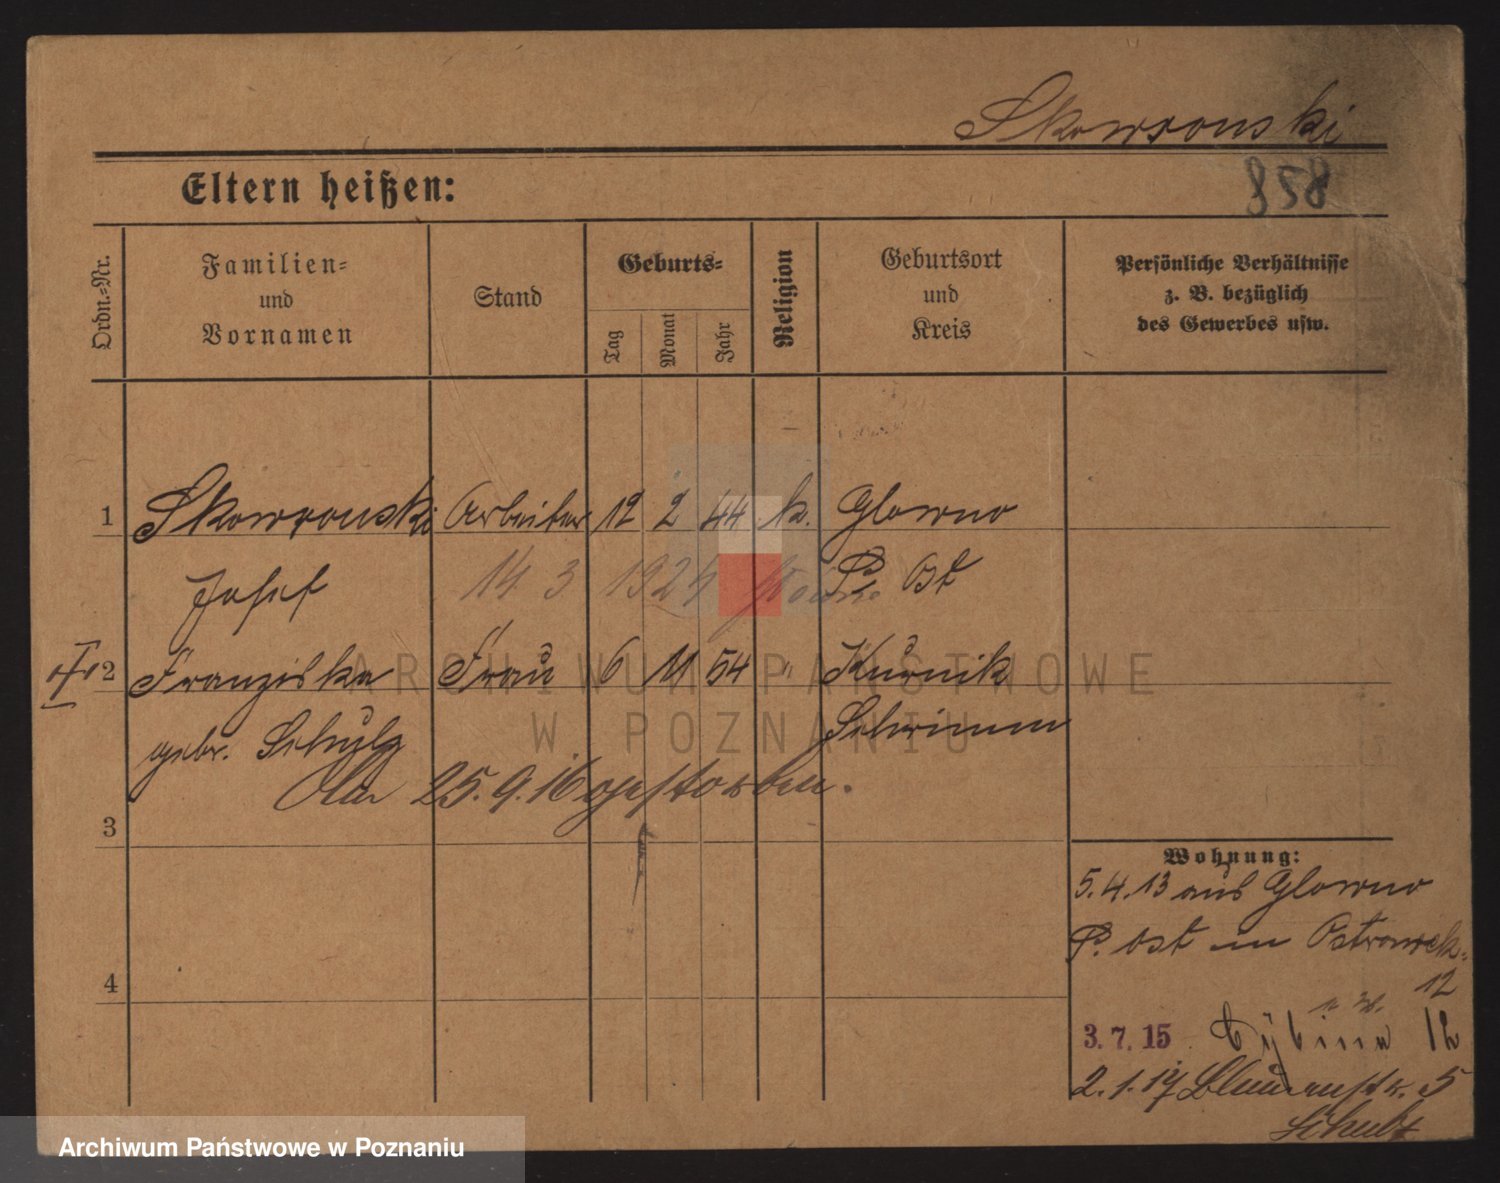 Skowronski
858
Eltern heißen:
Ordn.-Nr.
Familien-
und
Vornamen
Stand
Geburts-
Tag
Monat
Jahr
Religion
Geburtsort
und
Kreis
Persönliche Verhältnisse
z. B. bezüglich
des Gewerbes usw.
1 Skowronski Arbeiter 12 2 44 k. Glowno
Josef P. Ost
14 3 1924
2 Franziska Frau 6 11 54 " Kurnik
gebr. Schulz Schrimm
Am 25.9.16 gestorben.
3
4
Wohnung:
5.4.13 aus Glowno
P. Ost in Ostrowek
12
3.7.15 Cybina 12
2.1.17 Blumenstr. 5
Schulz
ARCHIWUM PAŃSTWOWE
W POZNANIU
Archiwum Państwowe w Poznaniu